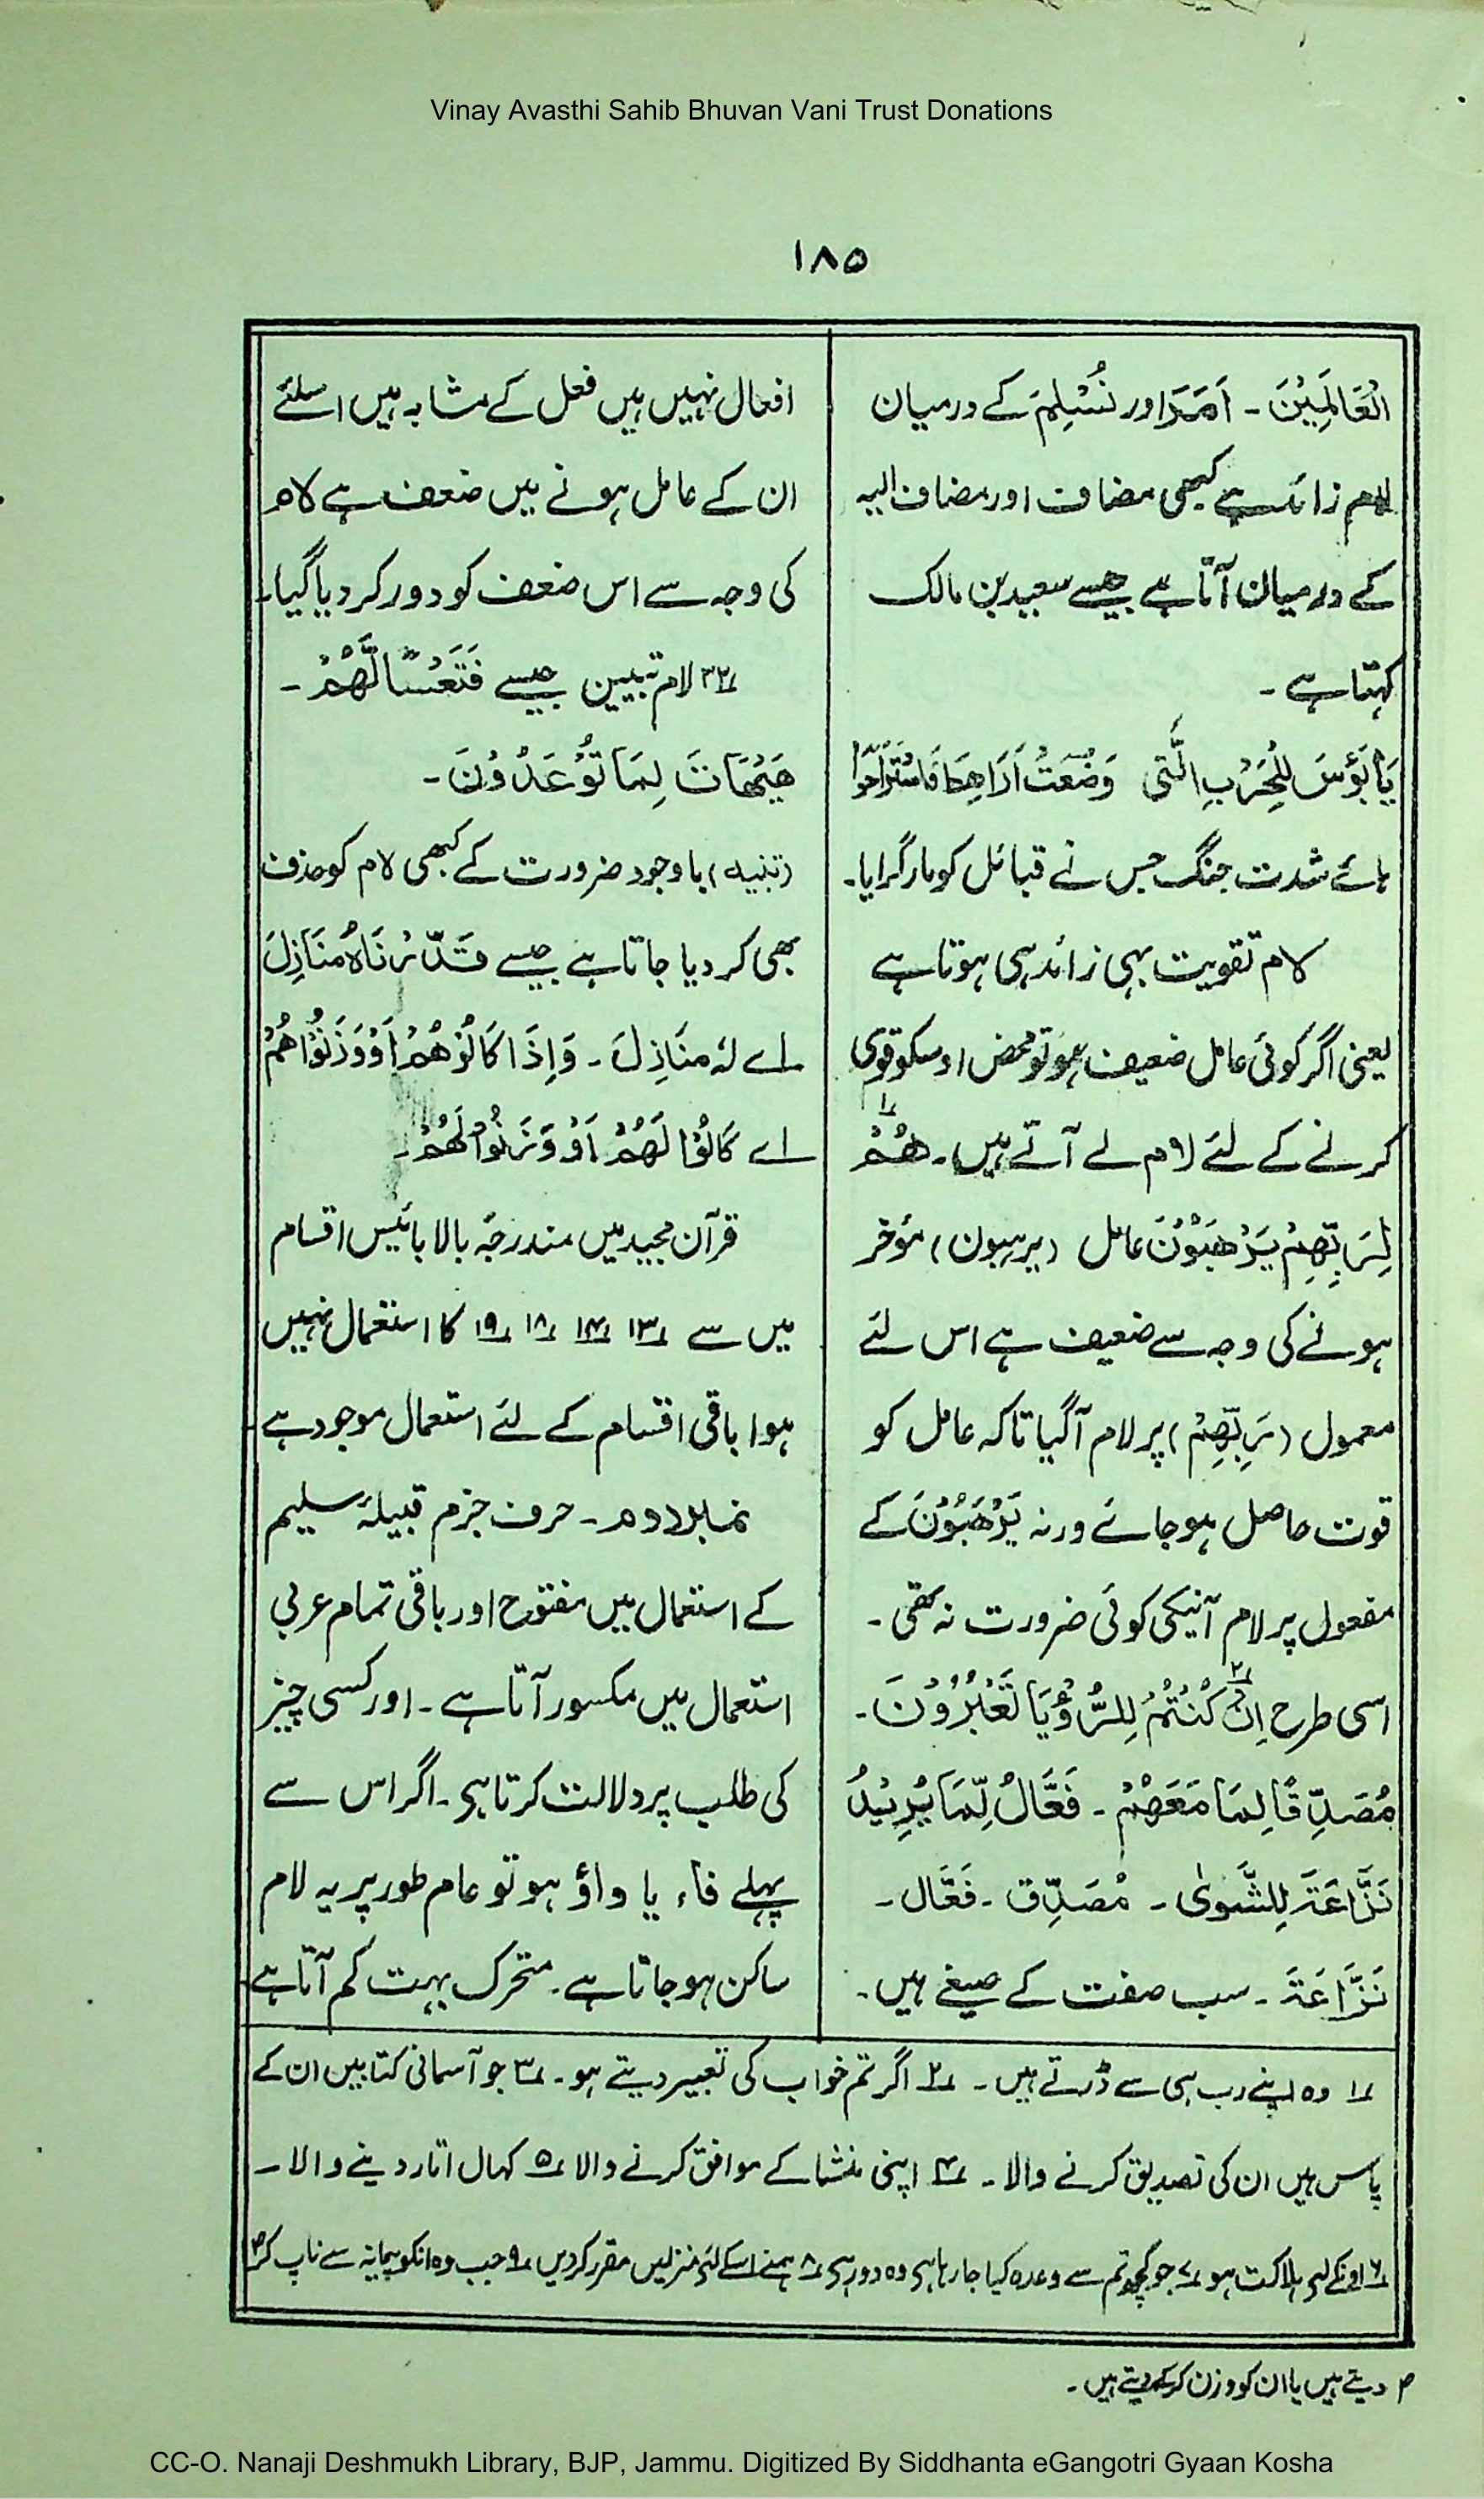 Vinay Avasthi Sahib Bhuvan Vani Trust Donations
۱۸۵
الْعَالَمِيْنَ ۔ اَمَرَ اور نُسْلِمَ کے درمیان
لام زائد ہے کبھی مضاف اور مضاف الیہ
کے درمیان آتا ہے جیسے سعید بن مالک
کہتا ہے ۔
يَا بُؤْسَ لِلْحَرْبِ الَّتِي وَضَعَتْ اَرَاهِطَ فَاسْتَرَاحُوا
ہائے شدت جنگ جس نے قبائل کو مار گرایا۔
لام تقویت بہی زائد ہی ہوتا ہے
یعنی اگر کوئی عامل ضعیف ہو تو محض اوسکو قوی
کرنے کے لئے لام لے آتے ہیں۔ هُمْ ۱؎
لِرَبِّهِمْ يَرْهَبُوْنَ عامل (یرہبون) مؤخر
ہونے کی وجہ سے ضعیف ہے اس لئے
معمول (رَبِّهِمْ) پر لام آگیا تاکہ عامل کو
قوت حاصل ہو جائے ورنہ يَرْهَبُوْنَ کے
مفعول پر لام آنیکی کوئی ضرورت نہ تھی ۔
اسی طرح اِنْ ۲؎ كُنْتُمْ لِلرُّؤْيَا تَعْبُرُوْنَ۔
مُصَدِّقًا لِمَا مَعَهُمْ ۔ فَعَّالٌ لِّمَا يُرِيْدُ
نَزَّاعَةً لِلشَّوٰى ۔ مُصَدِّق ۔ فَعَّال ۔
نَزَّاعَةً ۔ سب صفت کے صیغے ہیں ۔
افعال نہیں ہیں فعل کے مشابہ ہیں اسلئے
ان کے عامل ہونے میں ضعف ہے لام
کی وجہ سے اس ضعف کو دور کر دیا گیا۔
۲۲؎ لام تبیین جیسے فَتَعْسًا لَّهُمْ ۔
هَيْهَاتَ لِمَا تُوْعَدُوْنَ ۔
(تنبیہ) باوجود ضرورت کے کبھی لام کو حذف
بھی کر دیا جاتا ہے جیسے قَدَّرْنَاهُ مَنَازِلَ
اے لہٗ مَنَازِلَ ۔ وَاِذَا كَالُوْهُمْ اَوْ وَزَنُوْهُمْ
اے كَالُوْا لَهُمْ اَوْ وَزَنُوْا لَهُمْ ۔
قرآن مجید میں مندرجۂ بالا بائیس اقسام
میں سے ۱۳؎ ۱۴؎ ۱۸؎ ۱۹؎ کا استعمال نہیں
ہوا باقی اقسام کے لئے استعمال موجود ہے
نمبر دوم ۔ حرف جزم قبیلۂ سلیم
کے استعمال میں مفتوح اور باقی تمام عربی
استعمال میں مکسور آتا ہے ۔ اور کسی چیز
کی طلب پر دلالت کرتا ہی ۔ اگر اس سے
پہلے فاء یا واؤ ہو تو عام طور پر یہ لام
ساکن ہو جاتا ہے ۔ متحرک بہت کم آتا ہے
۱؎ وہ اپنے رب ہی سے ڈرتے ہیں ۔ ۲؎ اگر تم خواب کی تعبیر دیتے ہو ۔ ۳؎ جو آسمانی کتابیں ان کے
پاس ہیں ان کی تصدیق کرنے والا ۔ ۴؎ اپنی منشا کے موافق کرنے والا ۵؎ کہال اتار دینے والا ۔
۶؎ اونکے لیے ہلاکت ہو ۷؎ جو کچھ تم سے وعدہ کیا جا رہا ہی وہ دور ہی ۸؎ ہمنے اسکے لئے منزلیں مقرر کردیں ۹؎ جب وہ انکو پیمانہ سے ناپ کر
دیتے ہیں یا ان کو وزن کرکے دیتے ہیں ۔
CC-O. Nanaji Deshmukh Library, BJP, Jammu. Digitized By Siddhanta eGangotri Gyaan Kosha